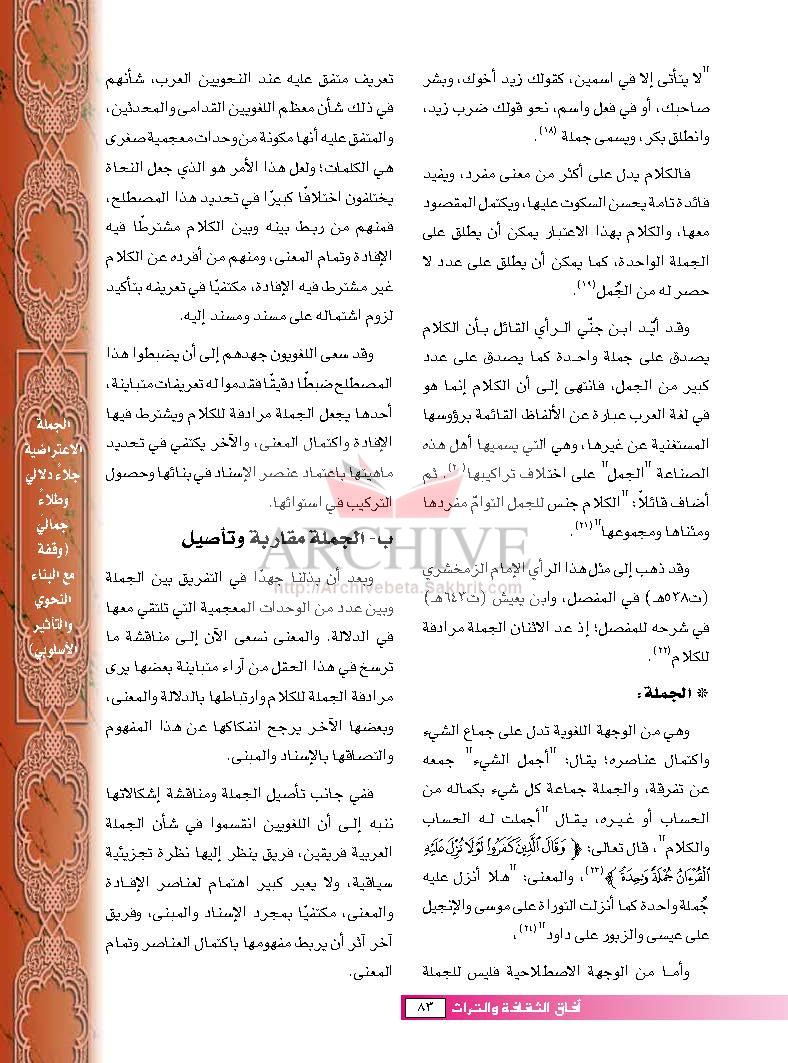 "لا يتأتى إلا في اسمين، كقولك زيد أخوك، وبشر
صاحبك، أو في فعل واسم، نحو قولك ضرب زيد،
وانطلق بكر، ويسمى جملة (١٨).
فالكلام يدل على أكثر من معنى مفرد، ويفيد
فائدة تامة يحسن السكوت عليها، ويكتمل المقصود
معها، والكلام بهذا الاعتبار يمكن أن يطلق على
الجملة الواحدة، كما يمكن أن يطلق على عدد لا
حصر له من الجُمل(١٩).
وقد أيّد ابن جنّي الرأي القائل بأن الكلام
يصدق على جملة واحدة كما يصدق على عدد
كبير من الجمل، فانتهى إلى أن الكلام إنما هو
في لغة العرب عبارة عن الألفاظ القائمة برؤوسها
المستغنية عن غيرها، وهي التي يسميها أهل هذه
الصناعة "الجمل" على اختلاف تراكيبها(٢٠). ثم
أضاف قائلاً: "الكلام جنس للجمل التوامّ مفردها
ومثناها ومجموعها"(٢١).
وقد ذهب إلى مثل هذا الرأي الإمام الزمخشري
(ت٥٣٨هـ) في المفصل، وابن يعيش (ت٦٤٣هـ)
في شرحه للمفصل؛ إذ عد الاثنان الجملة مرادفة
للكلام(٢٢).
* الجملة:
وهي من الوجهة اللغوية تدل على جماع الشيء
واكتمال عناصره؛ يقال: "أجمل الشيء" جمعه
عن تفرقة، والجملة جماعة كل شيء بكماله من
الحساب أو غيره، يقال "أجملت له الحساب
والكلام"، قال تعالى: ﴿ وَقَالَ ٱلَّذِينَ كَفَرُوا۟ لَوْلَا نُزِّلَ عَلَيْهِ
ٱلْقُرْءَانُ جُمْلَةً وَٰحِدَةً ﴾(٢٣)، والمعنى: "هلا أنزل عليه
جُملة واحدة كما أنزلت التوراة على موسى والإنجيل
على عيسى والزبور على داود"(٢٤)،
وأما من الوجهة الاصطلاحية فليس للجملة
تعريف متفق عليه عند النحويين العرب، شأنهم
في ذلك شأن معظم اللغويين القدامى والمحدثين،
والمتفق عليه أنها مكونة من وحدات معجمية صغرى
هي الكلمات؛ ولعل هذا الأمر هو الذي جعل النحاة
يختلفون اختلافًا كبيرًا في تحديد هذا المصطلح،
فمنهم من ربط بينه وبين الكلام مشترطًا فيه
الإفادة وتمام المعنى، ومنهم من أفرده عن الكلام
غير مشترط فيه الإفادة، مكتفيًا في تعريفه بتأكيد
لزوم اشتماله على مسند ومسند إليه.
وقد سعى اللغويون جهدهم إلى أن يضبطوا هذا
المصطلح ضبطًا دقيقًا فقدموا له تعريفات متباينة،
أحدها يجعل الجملة مرادفة للكلام ويشترط فيها
الإفادة واكتمال المعنى، والآخر يكتفي في تحديد
ماهيتها باعتماد عنصر الإسناد في بنائها وحصول
التركيب في استوائها.
ب- الجملة مقاربة وتأصيل
وبعد أن بذلنا جهدًا في التفريق بين الجملة
وبين عدد من الوحدات المعجمية التي تلتقي معها
في الدلالة. والمعنى نسعى الآن إلى مناقشة ما
ترسخ في هذا الحقل من آراء متباينة بعضها يرى
مرادفة الجملة للكلام وارتباطها بالدلالة والمعنى،
وبعضها الآخر يرجح انفكاكها عن هذا المفهوم
والتصاقها بالإسناد والمبنى.
ففي جانب تأصيل الجملة ومناقشة إشكالاتها
ننبه إلى أن اللغويين انقسموا في شأن الجملة
العربية فريقين، فريق ينظر إليها نظرة تجزيئية
سياقية، ولا يعير كبير اهتمام لعناصر الإفادة
والمعنى، مكتفيًا بمجرد الإسناد والمبنى، وفريق
آخر آثر أن يربط مفهومها باكتمال العناصر وتمام
المعنى.
الجملة
الاعتراضية
جلاءٌ دلالي
وطلاءٌ
جمالي
(وقفة
مع البناء
النحوي
والتأثير
الأسلوبي)
ARCHIVE
http://Archivebeta.Sakhrit.com
آفاق الثقافة والتراث ٨٣